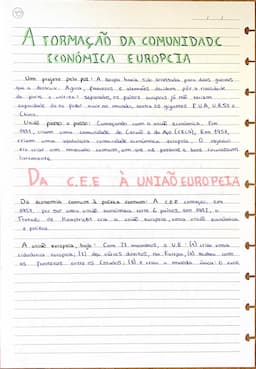 A FORMAÇÃO DA COMUNIDADE
ECONÔMICA EUROPEIA
Um projeto pela paz: A Europa havia sido arrastada para duas guerras
que a Agora, franceses e alemães decidem pôr a rivalidade
de parte e separados, os países europeus já não seriam
capazes de no mundo, entre os gigantes EUA, URSS e
China.
União passo a passo: Começando com a união econômica. Em
1951, criam uma comunidade de Carvão e do Aço (CECA). Em 1957,
criam uma verdadeira comunidade econômica europeia. O
era criar um mercado comum, em que as pessoas e bens circulassem
livremente.
DA C.E.E À UNIÃO EUROPEIA
Da economia comum à política comum: A CEE começou, em
1957, por ser uma união econômica entre 6 países, em 1992, o
Tratado de Maastricht cria a união europeia, uma união econômica
e política.
A união europeia, hoje: Com 27 membros, a U.E: (1) criar uma
cidadania europeia; (2) deu vários direitos, na Europa, (3) acabou com
as fronteiras entre os Estados; (4) e criou a moeda única: O euro